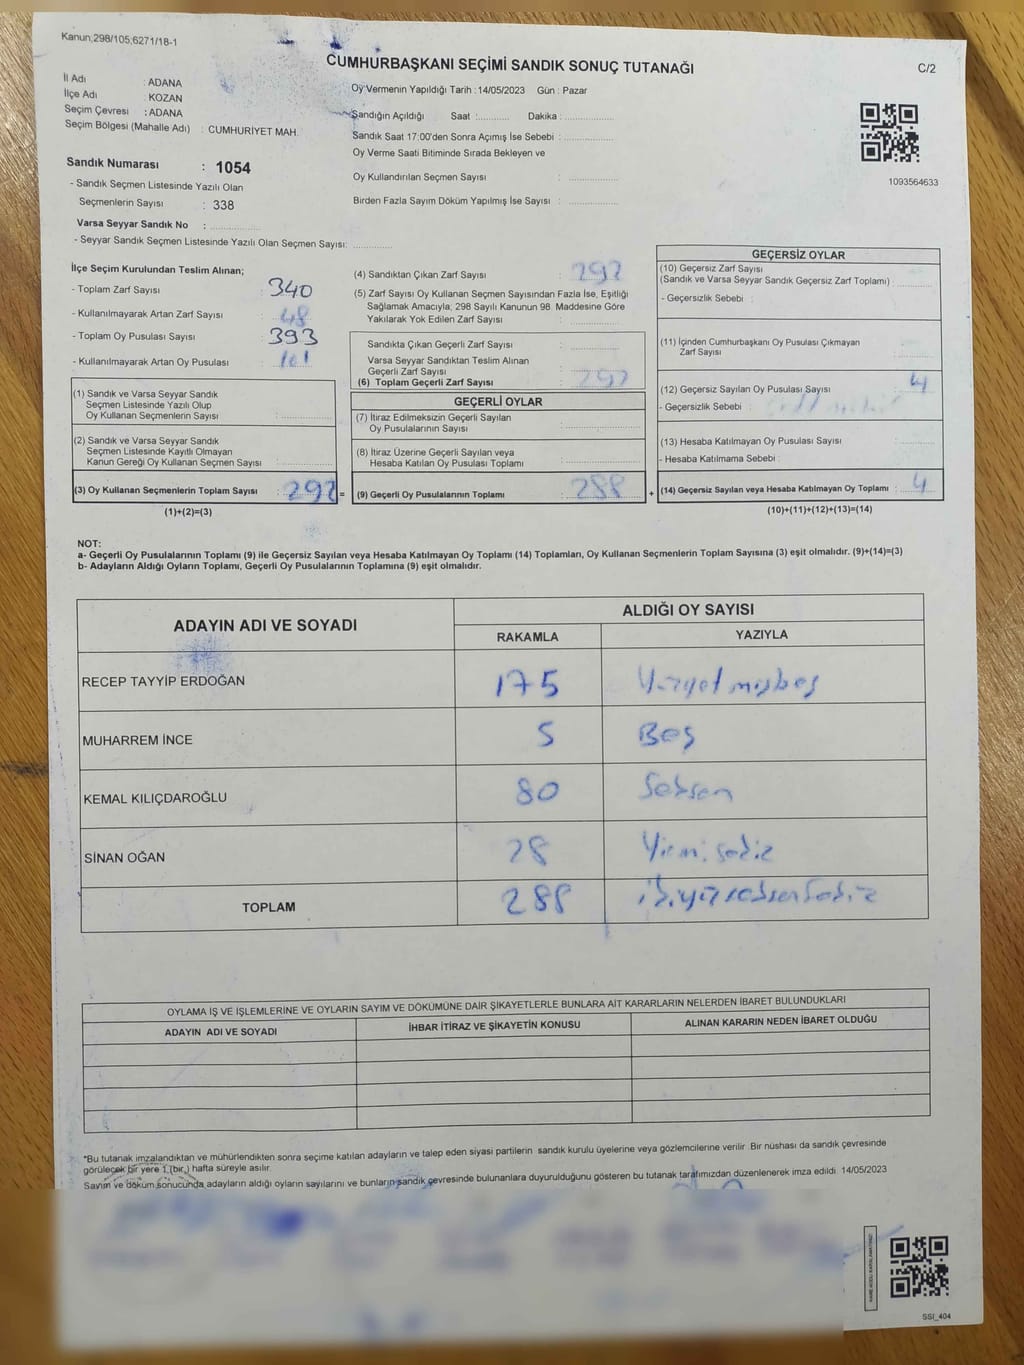 Kanun;298/105;6271/18-1
CUMHURBAŞKANI SEÇİMİ SANDIK SONUÇ TUTANAĞI
C/2
İl Adı : ADANA
İlçe Adı : KOZAN
Seçim Çevresi : ADANA
Seçim Bölgesi (Mahalle Adı) : CUMHURİYET MAH.
Oy Vermenin Yapıldığı Tarih : 14/05/2023 Gün : Pazar
Sandığın Açıldığı Saat :........... Dakika :................
Sandık Saat 17:00'den Sonra Açımış İse Sebebi :................
Oy Verme Saati Bitiminde Sırada Bekleyen ve
Oy Kullandırılan Seçmen Sayısı : ................
Birden Fazla Sayım Döküm Yapılmış İse Sayısı : ................
1093564633
Sandık Numarası : 1054
- Sandık Seçmen Listesinde Yazılı Olan
Seçmenlerin Sayısı : 338
Varsa Seyyar Sandık No : ................
- Seyyar Sandık Seçmen Listesinde Yazılı Olan Seçmen Sayısı: ............
İlçe Seçim Kurulundan Teslim Alınan;
- Toplam Zarf Sayısı : 340
- Kullanılmayarak Artan Zarf Sayısı : 48
- Toplam Oy Pusulası Sayısı : 393
- Kullanılmayarak Artan Oy Pusulası : 101
(1) Sandık ve Varsa Seyyar Sandık
Seçmen Listesinde Yazılı Olup
Oy Kullanan Seçmenlerin Sayısı :................
(2) Sandık ve Varsa Seyyar Sandık
Seçmen Listesinde Kayıtlı Olmayan
Kanun Gereği Oy Kullanan Seçmen Sayısı :................
(3) Oy Kullanan Seçmenlerin Toplam Sayısı : 292 =
(1)+(2)=(3)
(4) Sandıktan Çıkan Zarf Sayısı : 292
(5) Zarf Sayısı Oy Kullanan Seçmen Sayısından Fazla İse, Eşitliği
Sağlamak Amacıyla; 298 Sayılı Kanunun 98. Maddesine Göre
Yakılarak Yok Edilen Zarf Sayısı : ................
Sandıkta Çıkan Geçerli Zarf Sayısı : ................
Varsa Seyyar Sandıktan Teslim Alınan
Geçerli Zarf Sayısı : ................
(6) Toplam Geçerli Zarf Sayısı : 292
GEÇERLİ OYLAR
(7) İtiraz Edilmeksizin Geçerli Sayılan
Oy Pusulalarının Sayısı :................
(8) İtiraz Üzerine Geçerli Sayılan veya
Hesaba Katılan Oy Pusulası Toplamı :................
(9) Geçerli Oy Pusulalarının Toplamı : 288 +
GEÇERSİZ OYLAR
(10) Geçersiz Zarf Sayısı
(Sandık ve Varsa Seyyar Sandık Geçersiz Zarf Toplamı) :
- Geçersizlik Sebebi :
(11) İçinden Cumhurbaşkanı Oy Pusulası Çıkmayan
Zarf Sayısı :
(12) Geçersiz Sayılan Oy Pusulası Sayısı : 4
- Geçersizlik Sebebi :
(13) Hesaba Katılmayan Oy Pusulası Sayısı :
- Hesaba Katılmama Sebebi :
(14) Geçersiz Sayılan veya Hesaba Katılmayan Oy Toplamı : 4
(10)+(11)+(12)+(13)=(14)
NOT:
a- Geçerli Oy Pusulalarının Toplamı (9) ile Geçersiz Sayılan veya Hesaba Katılmayan Oy Toplamı (14) Toplamları, Oy Kullanan Seçmenlerin Toplam Sayısına (3) eşit olmalıdır. (9)+(14)=(3)
b- Adayların Aldığı Oyların Toplamı, Geçerli Oy Pusulalarının Toplamına (9) eşit olmalıdır.
ADAYIN ADI VE SOYADI
ALDIĞI OY SAYISI
RAKAMLA YAZIYLA
RECEP TAYYİP ERDOĞAN 175 Yüzyetmişbeş
MUHARREM İNCE 5 Beş
KEMAL KILIÇDAROĞLU 80 Seksen
SİNAN OĞAN 28 Yirmi sekiz
TOPLAM 288 ikiyüzseksensekiz
OYLAMA İŞ VE İŞLEMLERİNE VE OYLARIN SAYIM VE DÖKÜMÜNE DAİR ŞİKAYETLERLE BUNLARA AİT KARARLARIN NELERDEN İBARET BULUNDUKLARI
ADAYIN ADI VE SOYADI İHBAR İTİRAZ VE ŞİKAYETİN KONUSU ALINAN KARARIN NEDEN İBARET OLDUĞU
*Bu tutanak imzalandıktan ve mühürlendikten sonra seçime katılan adayların ve talep eden siyasi partilerin sandık kurulu üyelerine veya gözlemcilerine verilir. Bir nüshası da sandık çevresinde
görülecek bir yere 1 (bir,) hafta süreyle asılır.
Sayım ve döküm sonucunda adayların aldığı oyların sayılarını ve bunların sandık çevresinde bulunanlara duyurulduğunu gösteren bu tutanak tarafımızdan düzenlenerek imza edildi. 14/05/2023
SSI_404